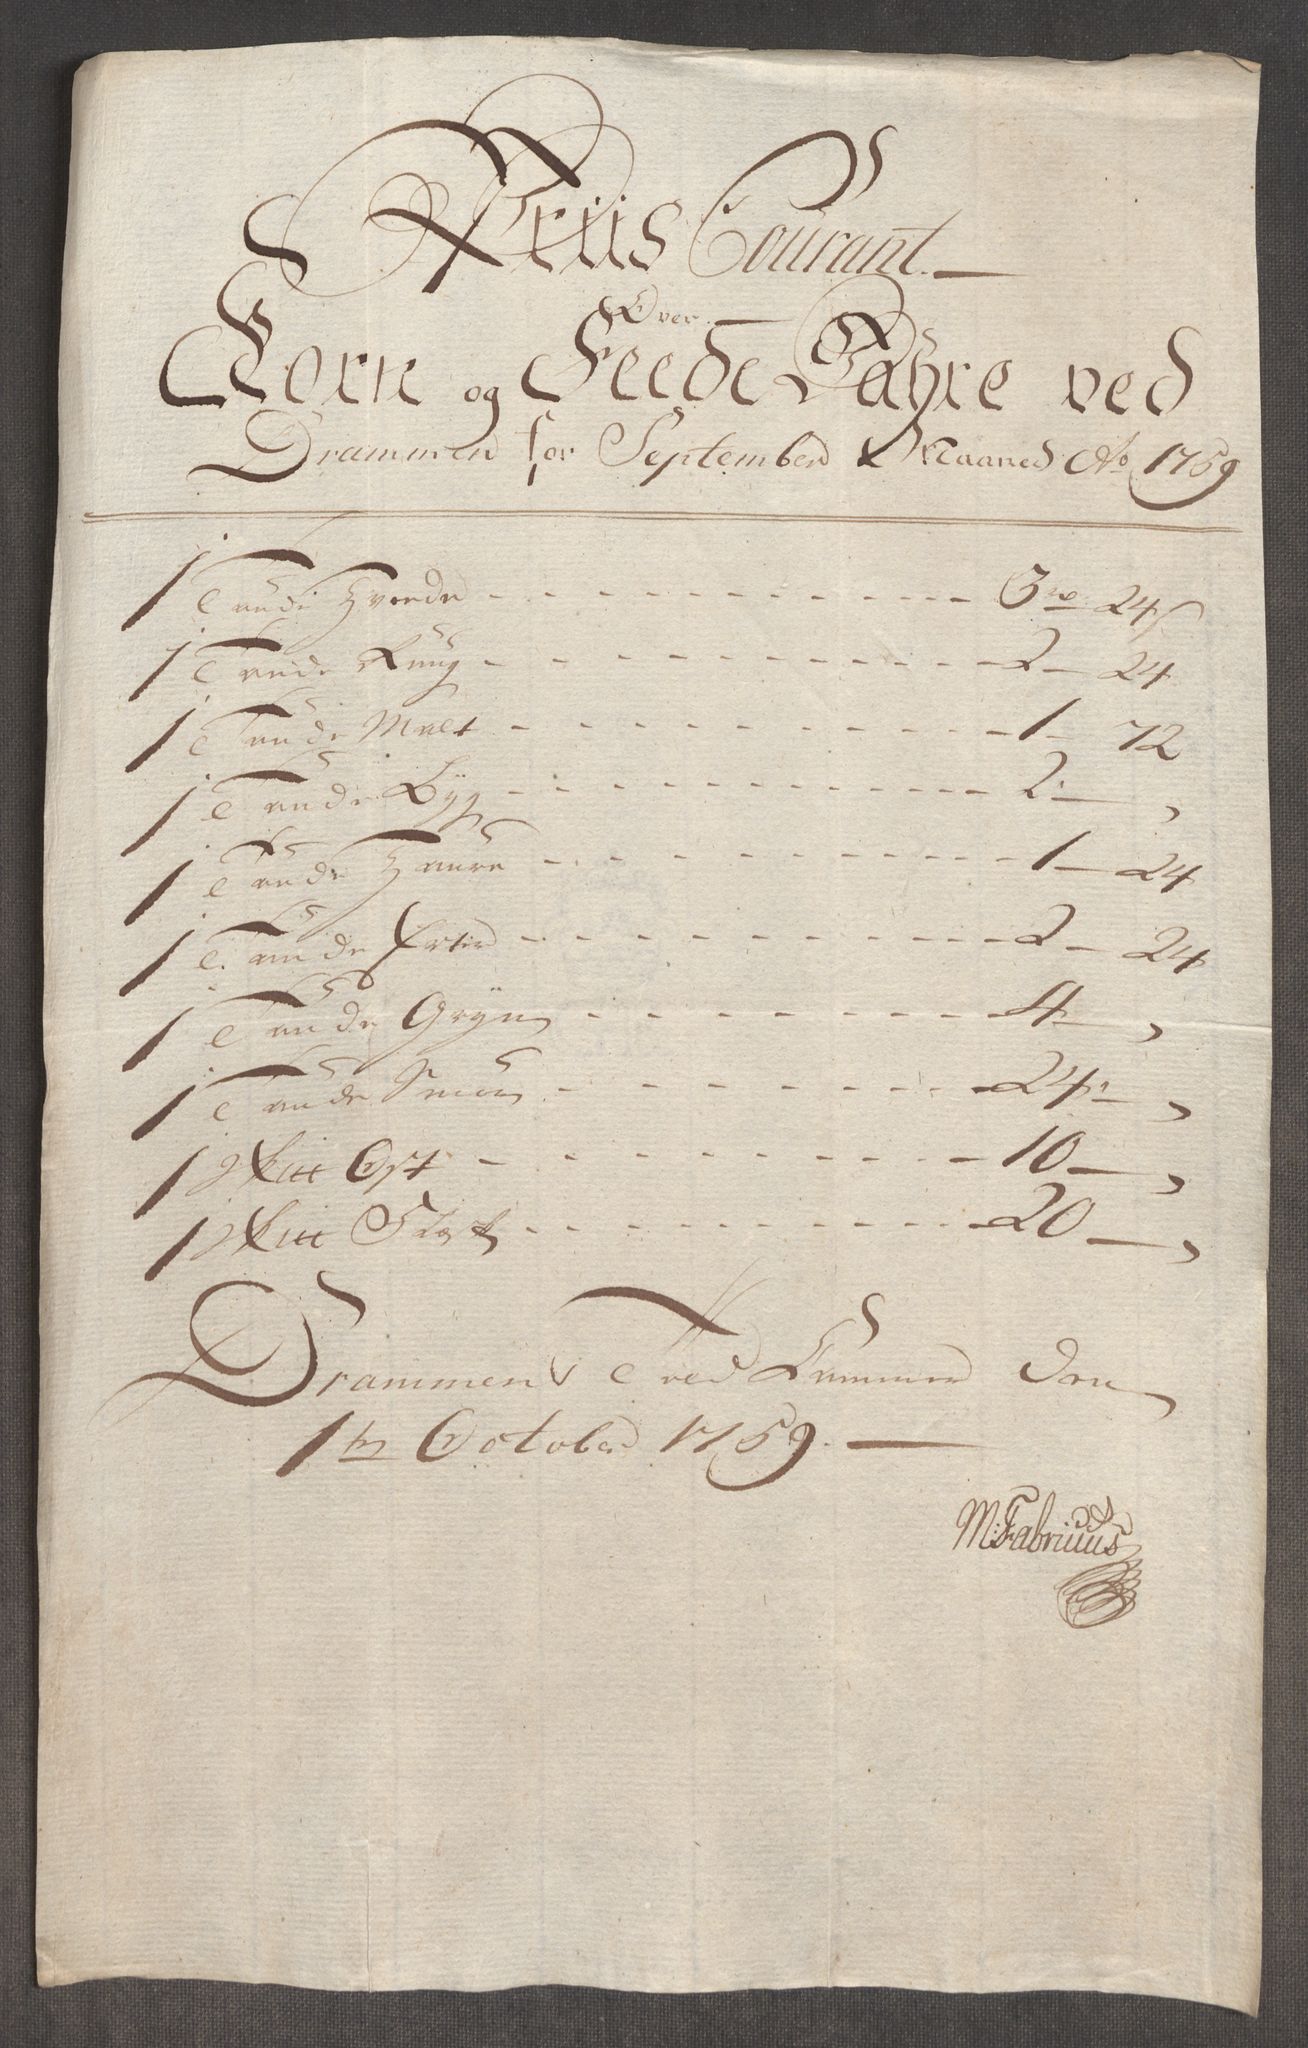 Priis Courant
Over
Korn og Feede Vahre ved
Drammen for September Maaned Ao 1759
1 Tønde Hvede - - - 3 rd 24 s
1 Tønde Rug - - - 2 - 24
1 Tønde Malt - - - 1 - 72
1 Tønde Byg - - - 2 - "
1 Tønde Haure - - - 1 - 24
1 Tønde Erter - - - 2 - 24
1 Tønde Gryn - - - 4 - "
1 Tønde Smør - - - 24 - "
1 Ost - - - 10 - "
1 Flesk - - - 20 - "
Drammens Told Kammer den
1te October 1759.
M: Fabricius